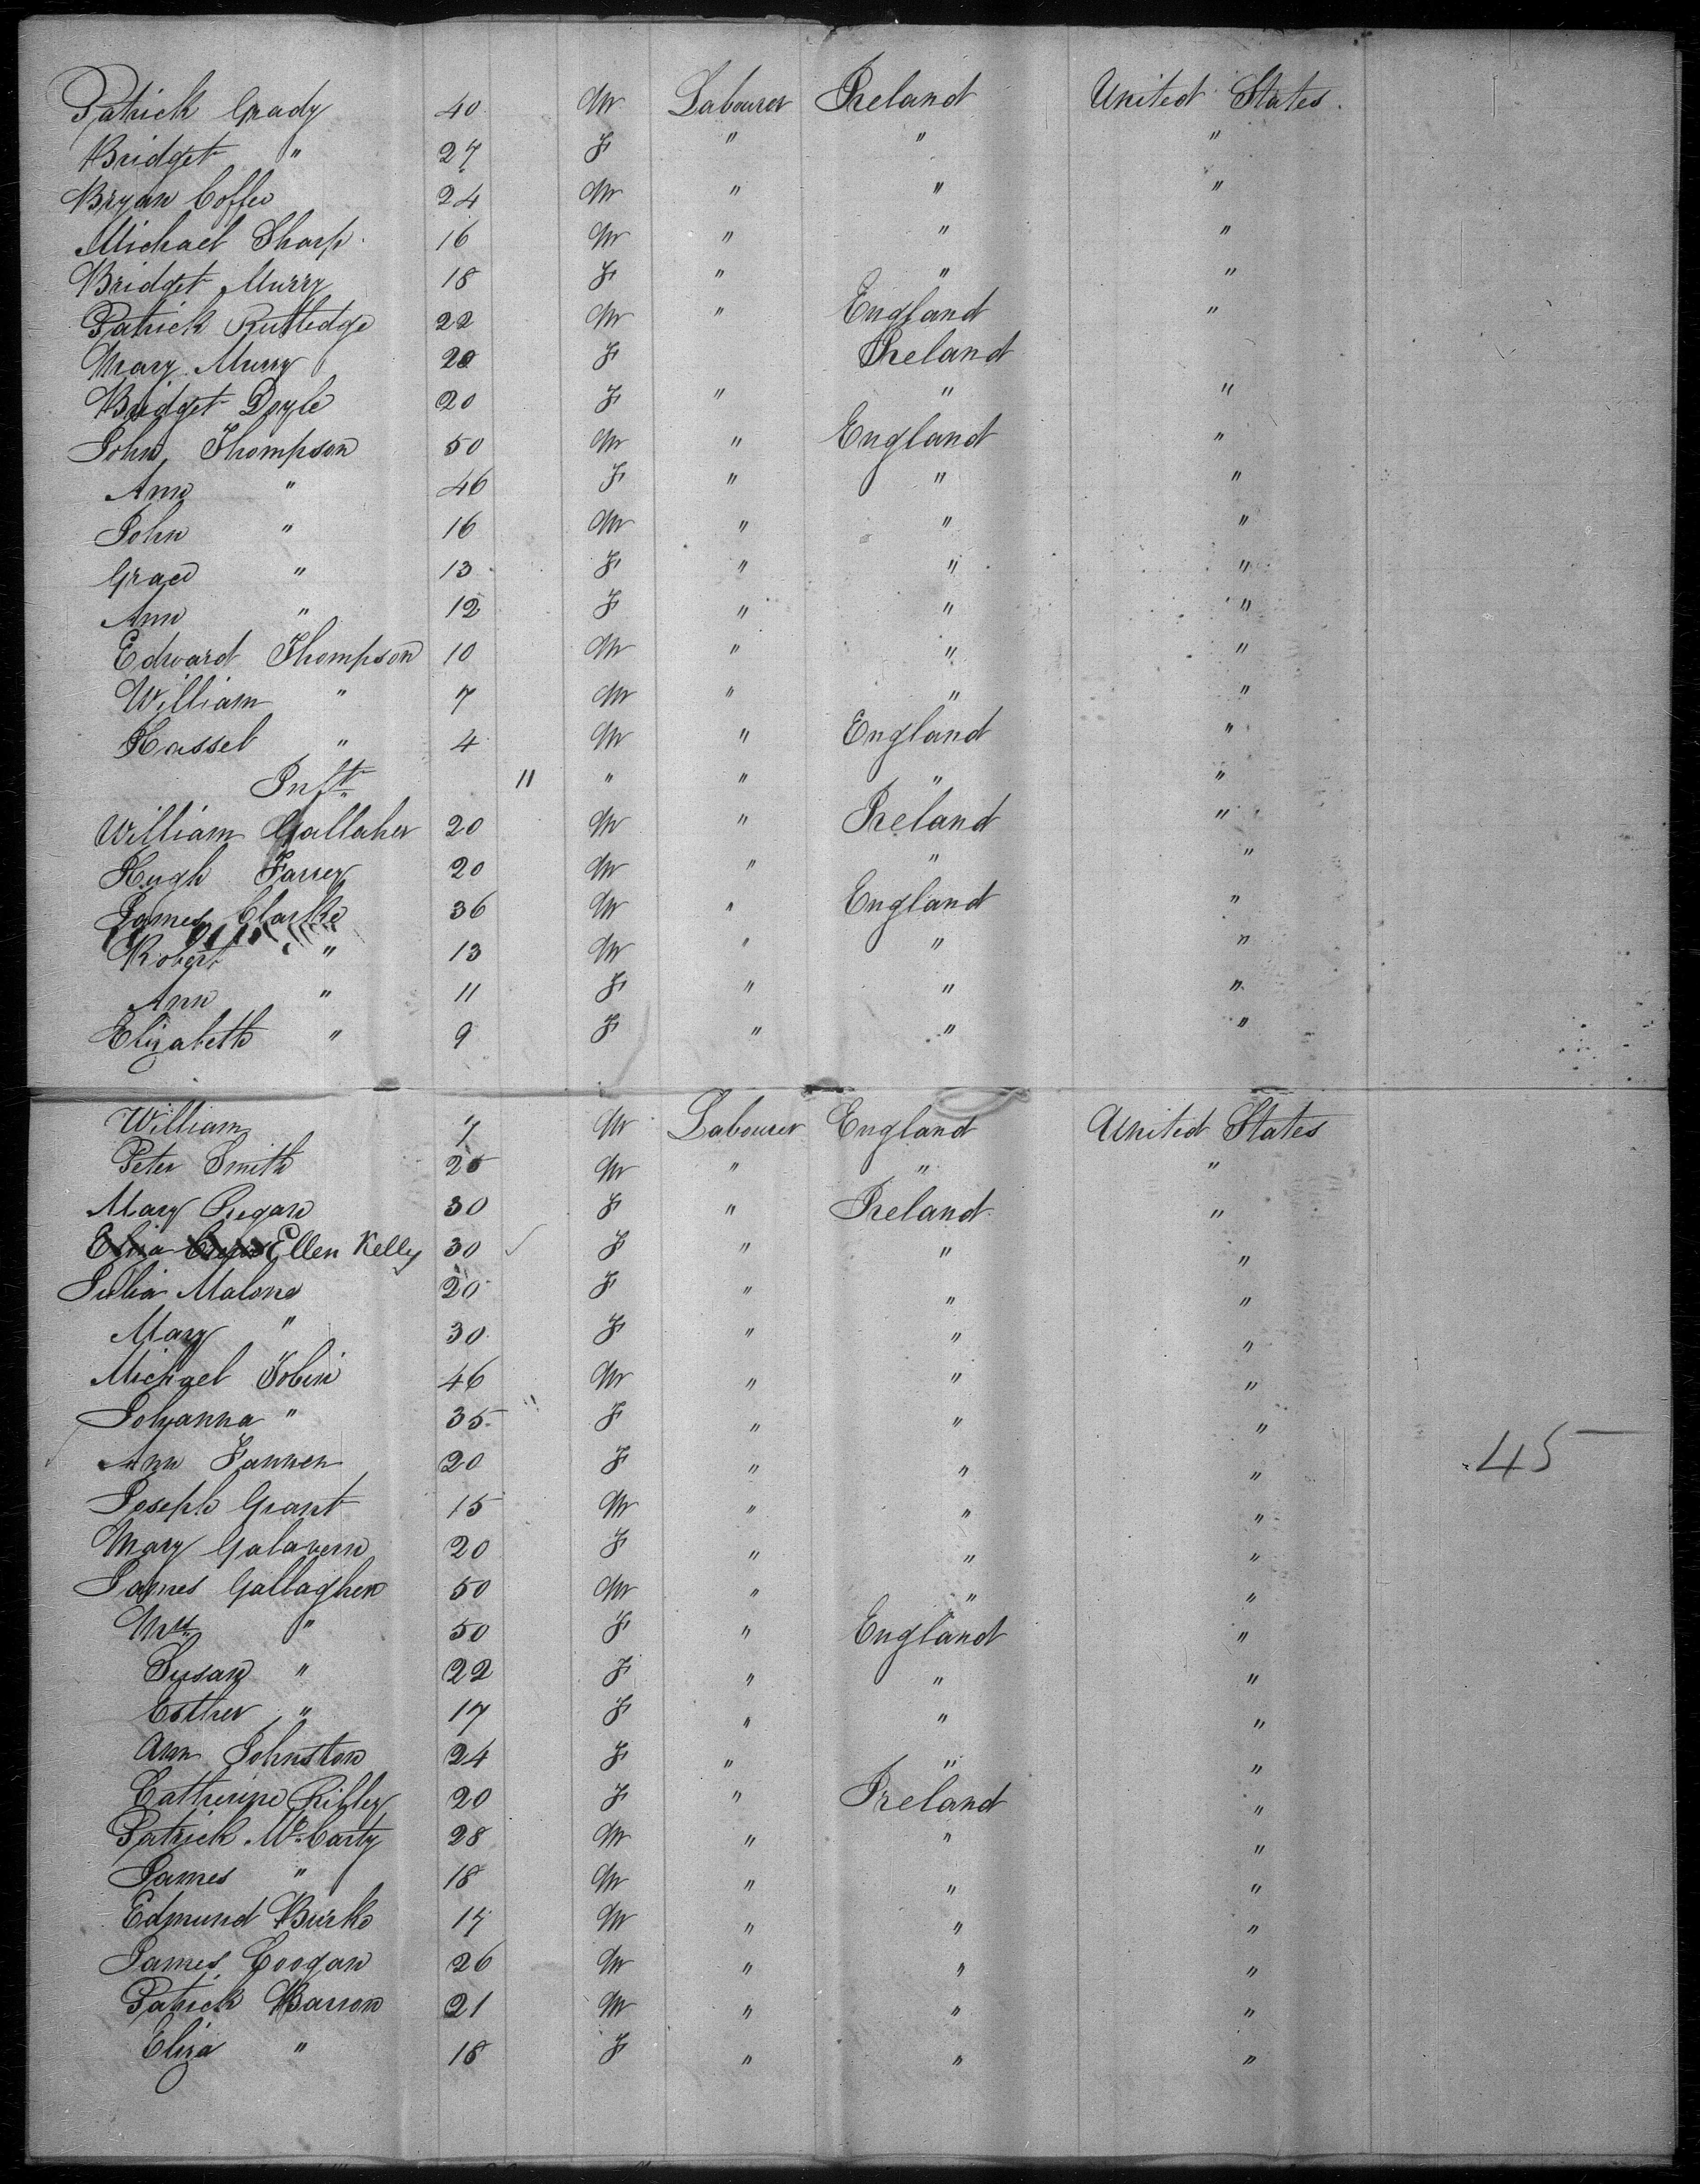 Patrick Grady 40 M Labourer Ireland United States.
Bridget " 27 F " " "
Bryan Coffee 24 M " " "
Michael Sharp 16 M " " "
Bridget Murry 18 F " " "
Patrick Rutledge 22 M " England "
Mary Murry 20 F Ireland
Bridget Doyle 20 F " " "
John Thompson 50 M " England "
Ann " 46 F " " "
John " 16 M " " "
Grace " 13 F " " "
Ann " 12 F " " "
Edward Thompson 10 M " " "
William " 7 M " " "
Hassel " 4 M " England "
Inft. 11 " " " "
William Gallaher 20 M " Ireland "
Hugh Farrey 20 M " " "
James Clarke 36 M " England "
Robert " 13 M " " "
Ann " 11 F " " "
Elizabeth " 9 F " " "
William 7 M Labourer England United States
Peter Smith 20 M " " "
Mary 30 F " Ireland "
Eliza Ellen Kelly 30 F " " "
Julia Malone 20 F " " "
Mary " 30 F " " "
Michael Tobin 46 M " " "
Johanna " 35 " F " " "
Ann Fannen 20 F " " " 45
Joseph Grant 15 M " " "
Mary Galavern 20 F " " "
James Gallagher 50 M " " "
Mrs. " 50 F " England "
Susan " 22 F " " "
Esther " 17 F " " "
Ann Johnston 24 F " " "
Catherine Rilley 20 F " Ireland "
Patrick McCarty 28 M " " "
James " 18 M " " "
Edmund Burke 17 M " " "
James Coogan 26 M " " "
Patrick Barron 21 M " " "
Eliza " 18 F " " "